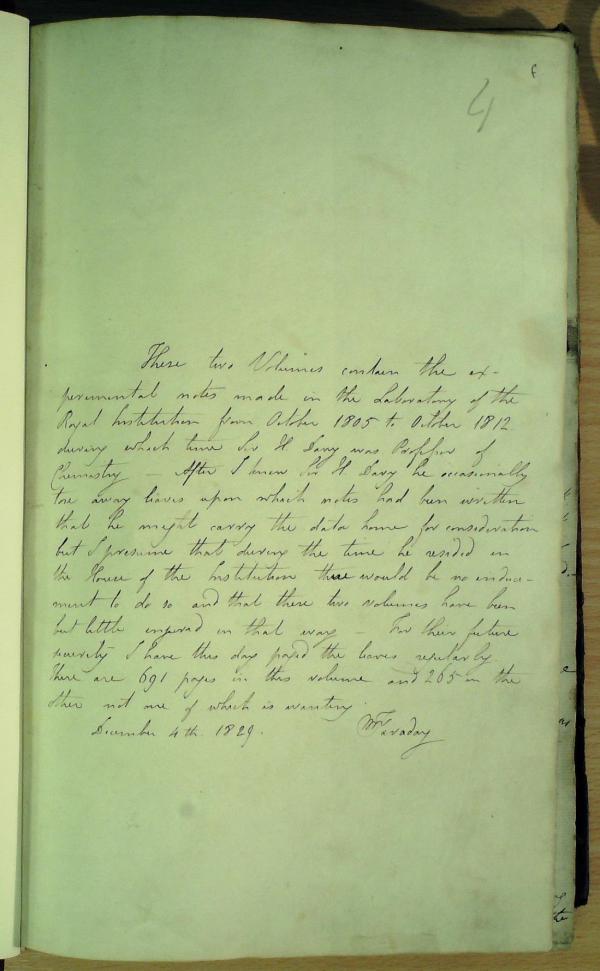 4
These two Volumes contain the ex-
perimental notes made in the Laboratory of the
Royal Institution from October 1805 to October 1812
during which time Sir H. Davy was Professor of
Chemistry – After I knew Sir H Davy he occasionally
tore away leaves upon which notes had been written
that he might carry the data home for consideration
but I presume that during the time he resided in
the House of the Institution there would be no induce-
ment to do so and that these two volumes have been
but little injured in that way – For their future
security I have this day paged the leaves regularly
there are 691 pages in this volume and 265 in the
other not one of which is wanting.
December 4th. 1829. M Faraday